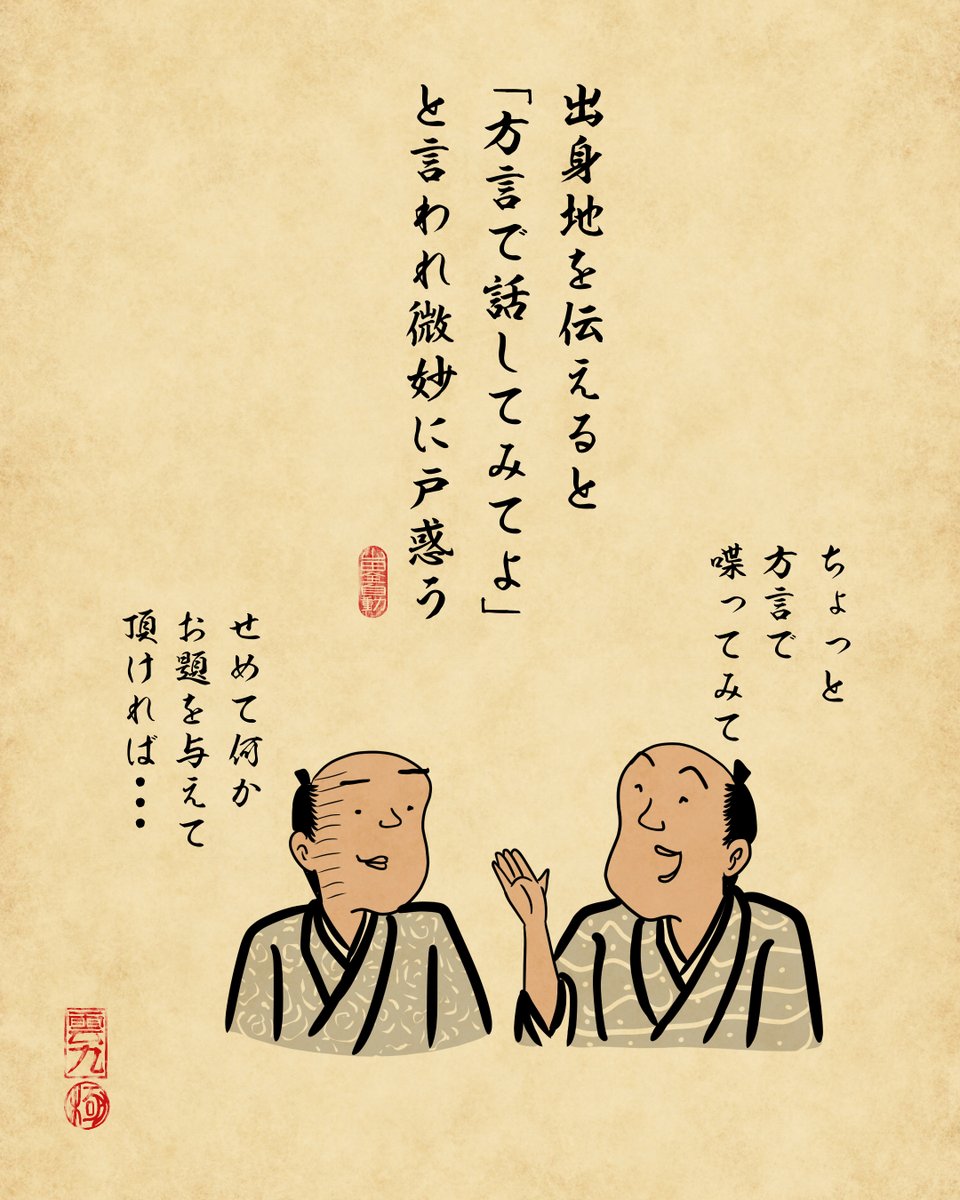 出身地を伝えると
「方言で話してみてよ」
と言われ微妙に戸惑う
ちょっと
方言で
喋ってみて
せめて何か
お題を与えて
頂ければ・・・